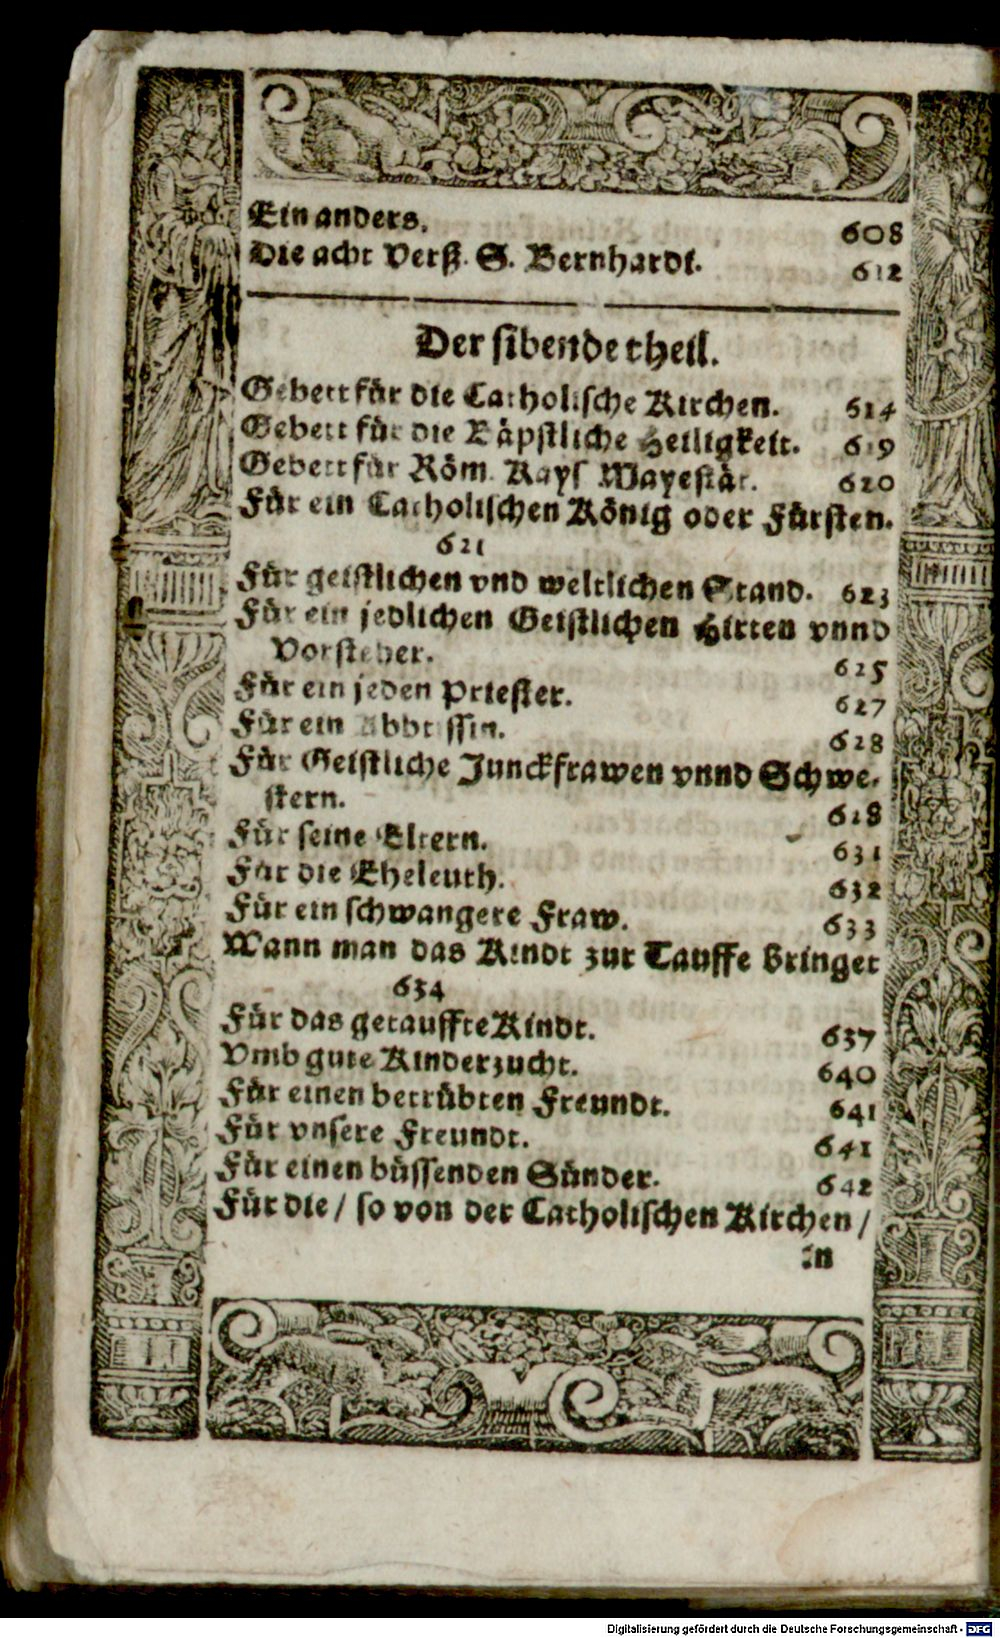 Ein anders. 608
Die acht Verß. S. Bernhardt. 612
Der sibende theil.
Gebett für die Catholische Kirchen. 614
Gebett für die Bäpstliche Heiligkeit. 619
Gebett für Röm. Kays Mayestät. 620
Für ein Catholischen König oder Fürsten.
621
Für geistlichen vnd weltlichen Stand. 623
Für ein jedlichen Geistlichen Hirten vnnd
Vorsteher. 625
Für ein jeden Priester. 627
Für ein Abbtissin. 628
Für Geistliche Junckfrawen vnnd Schwe-
stern. 628
Für seine Eltern. 631
Für die Eheleuth. 632
Für ein schwangere Fraw. 633
Wann man das Kindt zur Tauffe bringet
634
Für das getauffte Kindt. 637
Vmb gute Kinderzucht. 640
Für einen betrübten Freundt. 641
Für vnsere Freundt. 641
Für einen büssenden Sünder. 642
Für die / so von der Catholischen Kirchen /
in
Digitalisierung gefördert durch die Deutsche Forschungsgemeinschaft - DFG